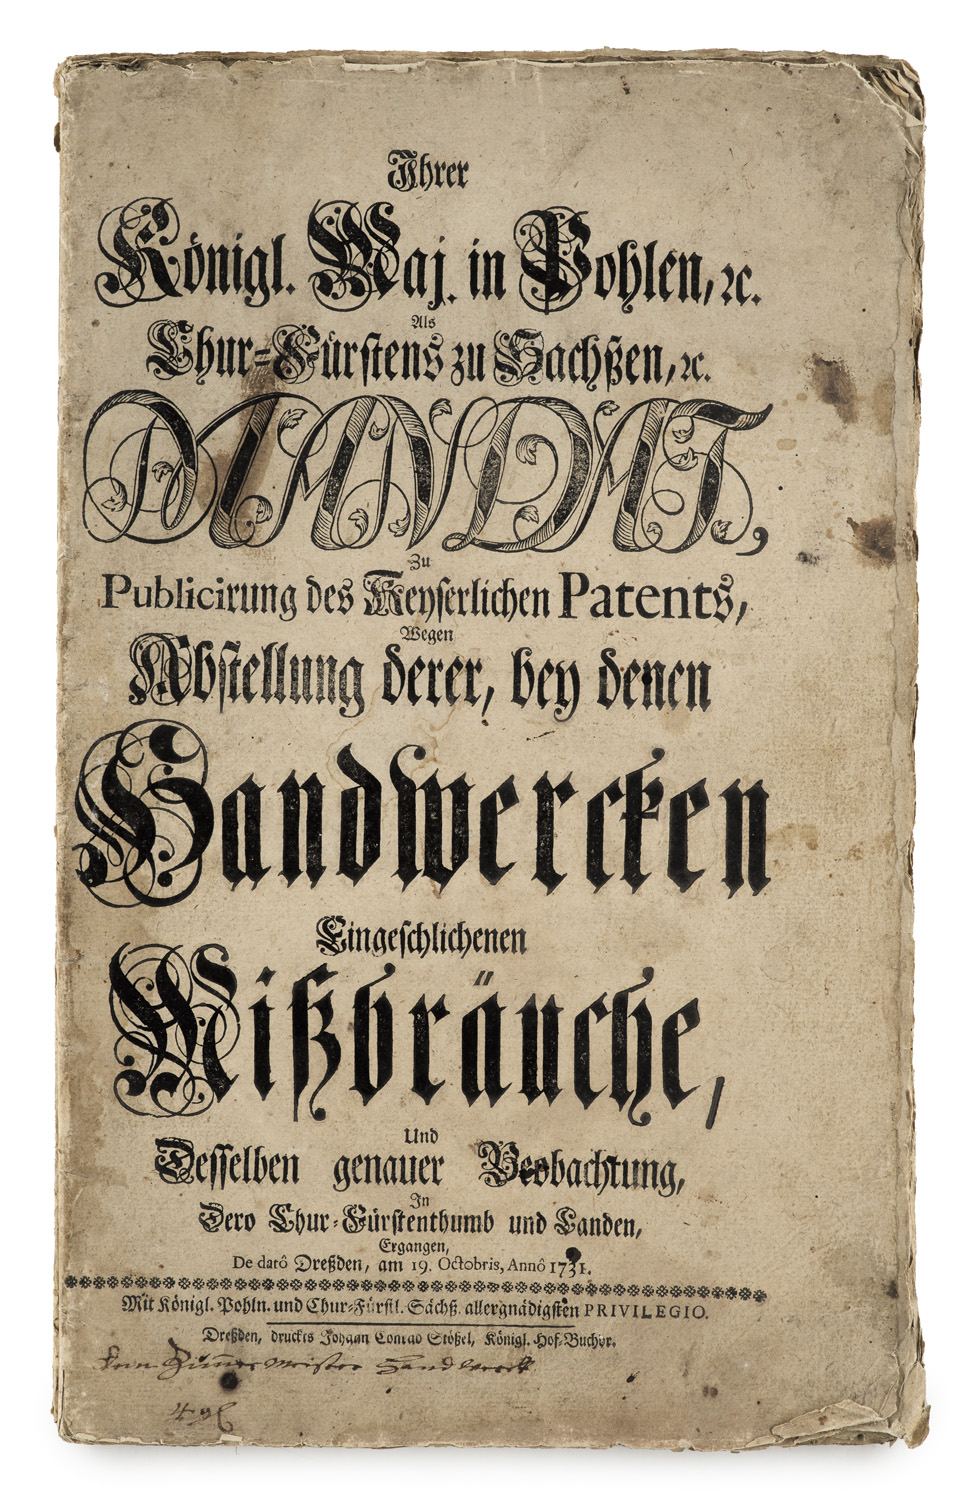 Ihrer
Königl. Maj. in Pohlen, ꝛc.
Als
Chur-Fürstens zu Sachßen, ꝛc.
MANDAT,
Zu
Publicirung des Keyserlichen Patents,
Wegen
Abstellung derer, bey denen
Handwercken
Eingeschlichenen
Mißbräuche,
Und
Desselben genauer Beobachtung,
In
Dero Chur-Fürstenthumb und Landen,
Ergangen,
De datô Dreßden, am 19. Octobris, Annô 1731.
Mit Königl. Pohln. und Chur-Fürstl. Sächß. allergnädigsten PRIVILEGIO.
Dreßden, druckts Johann Conrad Stößel, Königl. Hof-Buchdr.
Zimmer Meister Handwerck